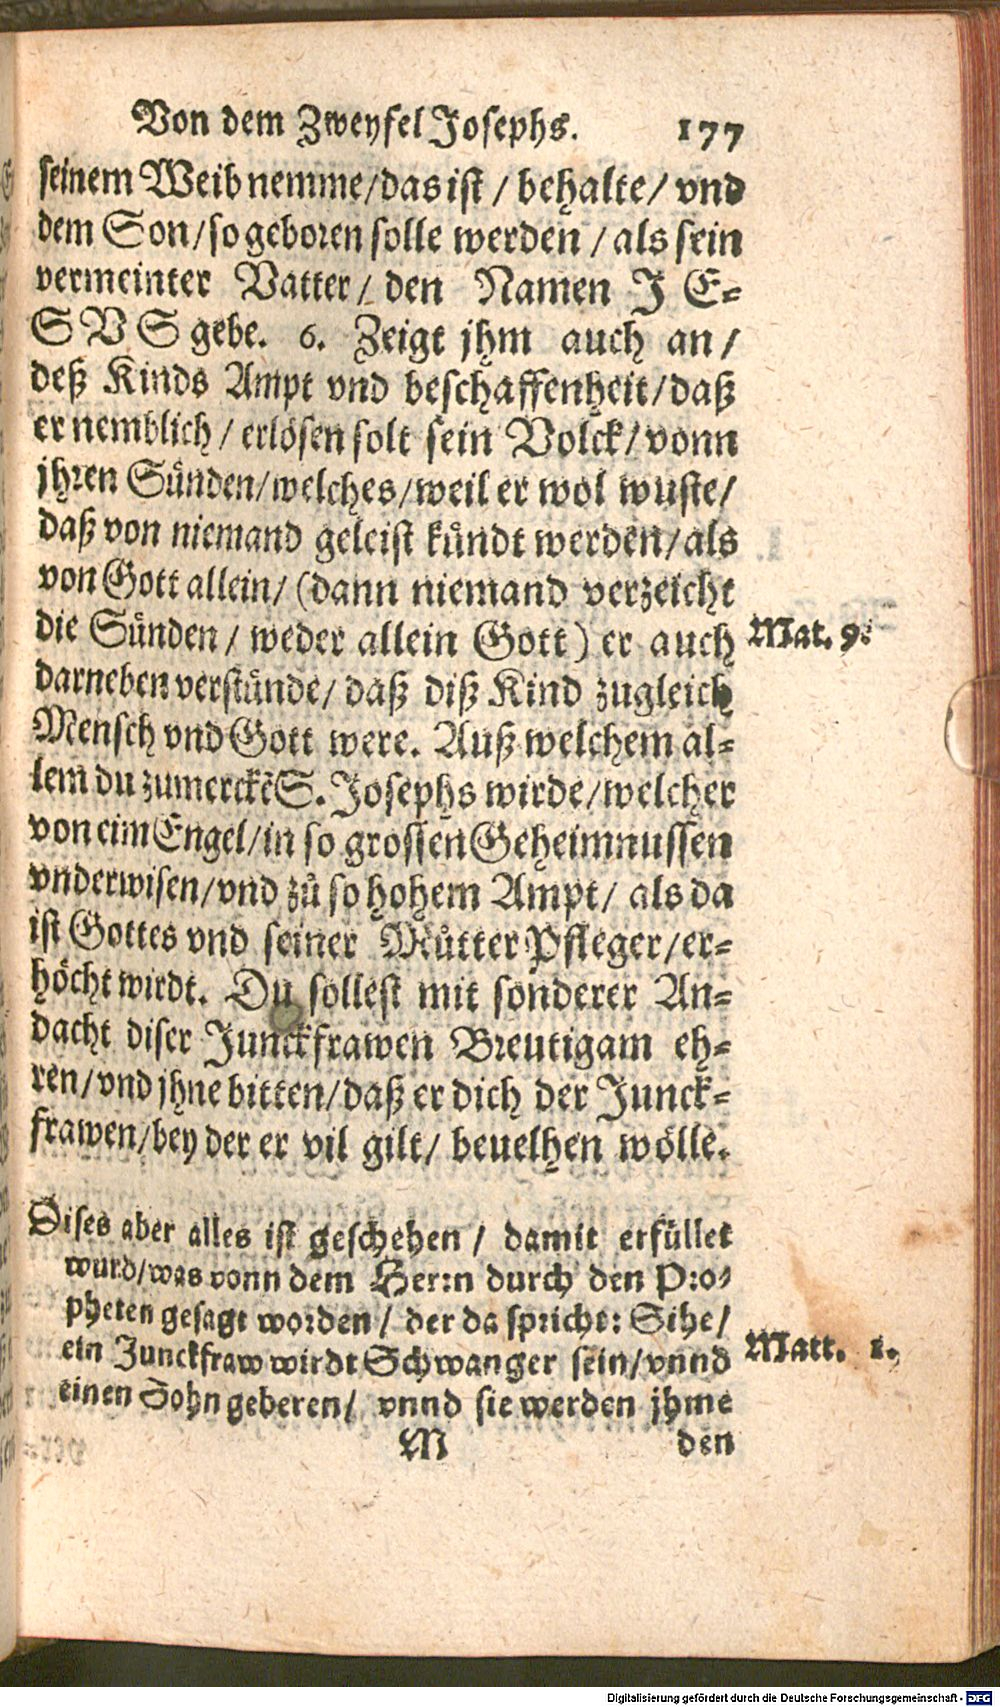 Von dem Zweyfel Josephs. 177
seinem Weib nemme/ das ist / behalte/ vnd
dem Son/ so geboren solle werden / als sein
vermeinter Vatter/ den Namen J E-
S V S gebe. 6. Zeigt jhm auch an/
deß Kinds Ampt vnd beschaffenheit/ daß
er nemblich / erlösen solt sein Volck/ vonn
jhren Sünden/ welches/ weil er wol wuste/
daß von niemand geleist kündt werden/ als
von Gott allein/ (dann niemand verzeicht
die Sünden / weder allein Gott) er auch Mat. 9.
darneben verstünde/ daß diß Kind zugleich
Mensch vnd Gott were. Auß welchem al-
lem du zumerckẽ S. Josephs wirde/ welcher
von eim Engel/ in so grossen Geheimnussen
vnderwisen/ vnd zů so hohem Ampt/ als da
ist Gottes vnd seiner Můtter Pfleger/ er-
höcht wirdt. Du sollest mit sonderer An-
dacht diser Junckfrawen Breutigam eh-
ren/ vnd jhne bitten/ daß er dich der Junck-
frawen/ bey der er vil gilt/ beuelhen wölle.
Dises aber alles ist geschehen / damit erfüllet
wurd/ was vonn dem Herrn durch den Pro-
pheten gesagt worden / der da spricht: Sihe/
ein Junckfraw wirdt Schwanger sein/ vnnd Matt. 1.
einen Sohn geberen/ vnnd sie werden jhme
M den
Digitalisierung gefördert durch die Deutsche Forschungsgemeinschaft - DFG